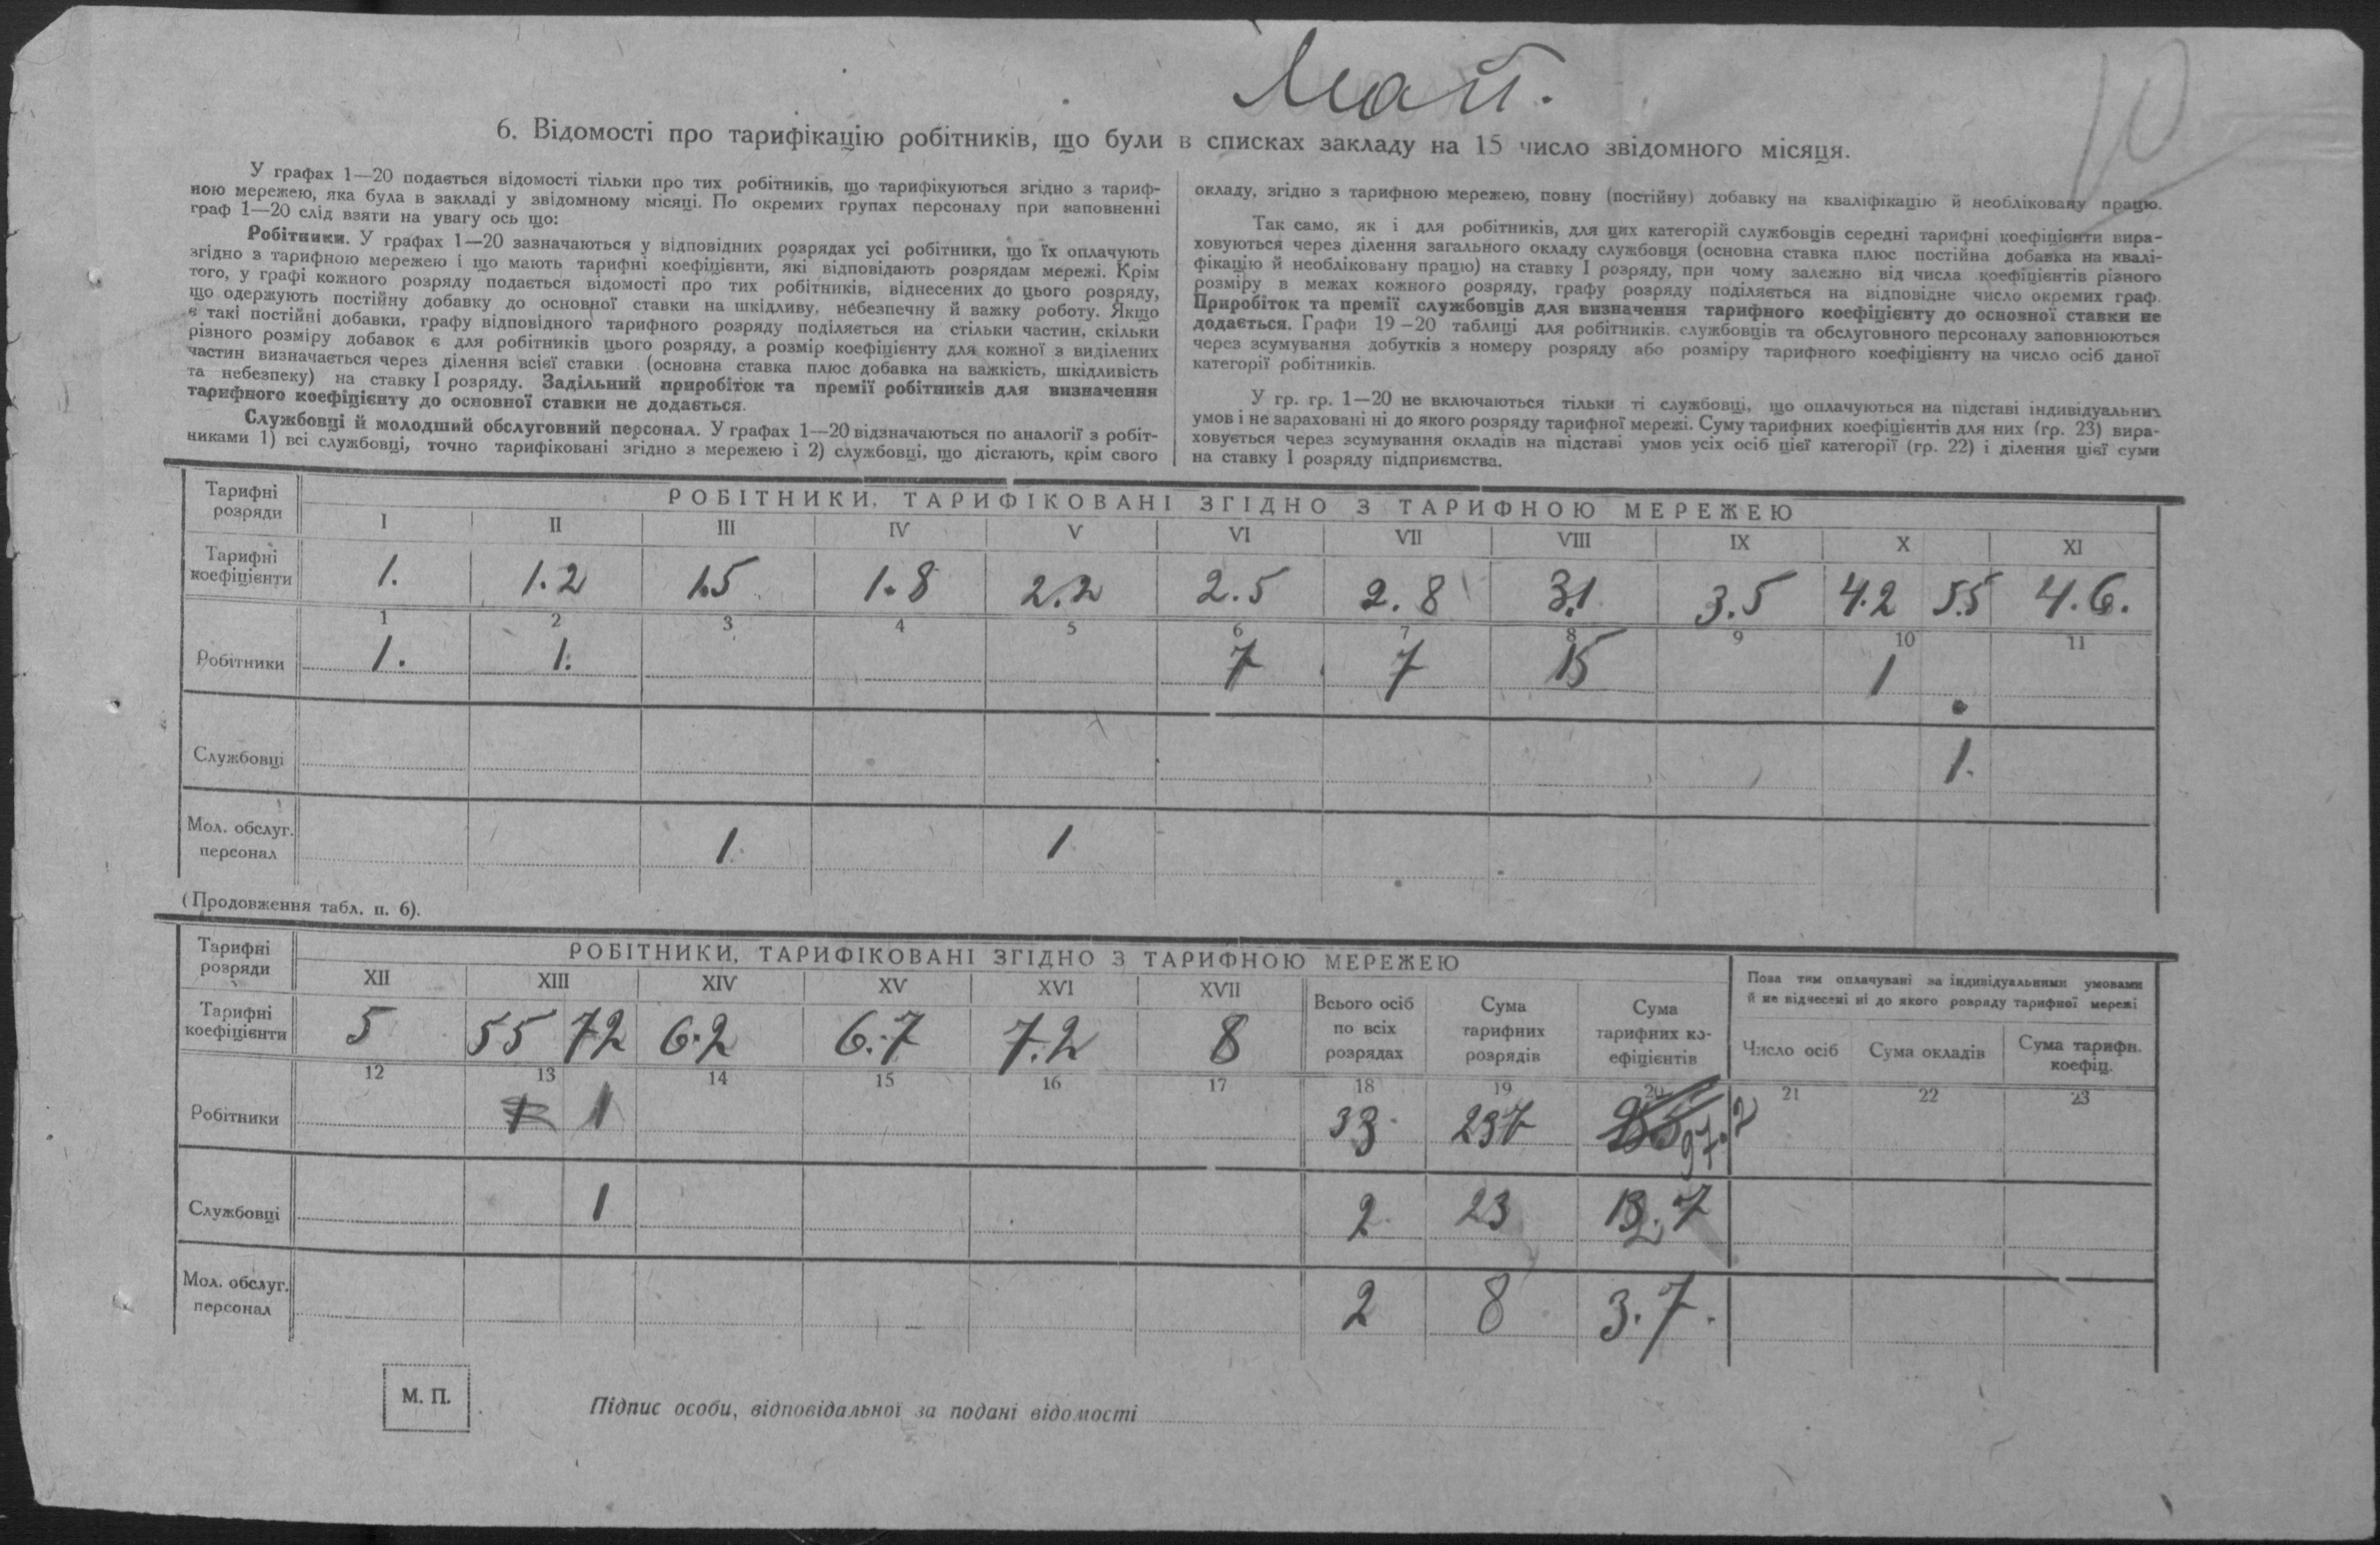 Май.
10
6. Відомості про тарифікацію робітників, що були в списках закладу на 15 число звідомного місяця.
У графах 1—20 подається відомості тільки про тих робітників, що тарифікуються згідно з тариф-
ною мережею, яка була в закладі у звідомному місяці. По окремих групах персоналу при заповненні
граф 1—20 слід взяти на увагу ось що:
Робітники. У графах 1—20 зазначаються у відповідних розрядах усі робітники, що їх оплачують
згідно з тарифною мережею і що мають тарифні коефіцієнти, які відповідають розрядам мережі. Крім
того, у графі кожного розряду подається відомості про тих робітників, віднесених до цього розряду,
що одержують постійну добавку до основної ставки на шкідливу, небезпечну й важку роботу. Якщо
є такі постійні добавки, графу відповідного тарифного розряду поділяється на стільки частин, скільки
різного розміру добавок є для робітників цього розряду, а розмір коефіцієнту для кожної з виділених
частин визначається через ділення всієї ставки (основна ставка плюс добавка на важкість, шкідливість
та небезпеку) на ставку I розряду. Задільний приробіток та премії робітників для визначення
тарифного коефіцієнту до основної ставки не додається.
Службовці й молодший обслуговний персонал. У графах 1—20 відзначаються по аналогії з робіт-
никами 1) всі службовці, точно тарифіковані згідно з мережею і 2) службовці, що дістають, крім свого
окладу, згідно з тарифною мережею, повну (постійну) добавку на кваліфікацію й необліковану працю.
Так само, як і для робітників, для цих категорій службовців середні тарифні коефіцієнти вира-
ховуються через ділення загального окладу службовця (основна ставка плюс постійна добавка на квалі-
фікацію й необліковану працю) на ставку I розряду, при чому залежно від числа коефіцієнтів різного
розміру в межах кожного розряду, графу розряду поділяється на відповідне число окремих граф.
Приробіток та премії службовців для визначення тарифного коефіцієнту до основної ставки не
додається. Графи 19—20 таблиці для робітників, службовців та обслуговного персоналу заповнюються
через зсумування добутків з номеру розряду або розміру тарифного коефіцієнту на число осіб даної
категорії робітників.
У гр. гр. 1—20 не включаються тільки ті службовці, що оплачуються на підставі індивідуальних
умов і не зараховані ні до якого розряду тарифної мережі. Суму тарифних коефіцієнтів для них (гр. 23) вира-
ховується через зсумування окладів на підставі умов усіх осіб цієї категорії (гр. 22) і ділення цієї суми
на ставку I розряду підприємства.
Тарифні розряди РОБІТНИКИ, ТАРИФІКОВАНІ ЗГІДНО З ТАРИФНОЮ МЕРЕЖЕЮ
I II III IV V VI VII VIII IX X XI
Тарифні коефіцієнти 1. 1.2 1.5 1.8 2.2 2.5 2.8 3.1 3.5 4.2 5.5 4.6.
1 2 3 4 5 6 7 8 9 10 11
Робітники 1. 1. 7 7 15 1
Службовці 1.
Мол. обслуг. персонал 1 1
(Продовження табл. п. 6).
Тарифні розряди РОБІТНИКИ, ТАРИФІКОВАНІ ЗГІДНО З ТАРИФНОЮ МЕРЕЖЕЮ
Поза тим оплачувані за індивідуальними умовами
й не віднесені ні до якого розряду тарифної мережі
XII XIII XIV XV XVI XVII
Всього осіб по всіх розрядах
Сума тарифних розрядів
Сума тарифних ко-ефіцієнтів
Число осіб
Сума окладів
Сума тарифн. коефіц.
Тарифні коефіцієнти 5 55 72 6.2 6.7 7.2 8
12 13 14 15 16 17 18 19 20 21 22 23
Робітники 1 33 237 97.2
Службовці 1 2 23 12.7
Мол. обслуг. персонал 2 8 3.7.
М. П.
Підпис особи, відповідальної за подані відомості